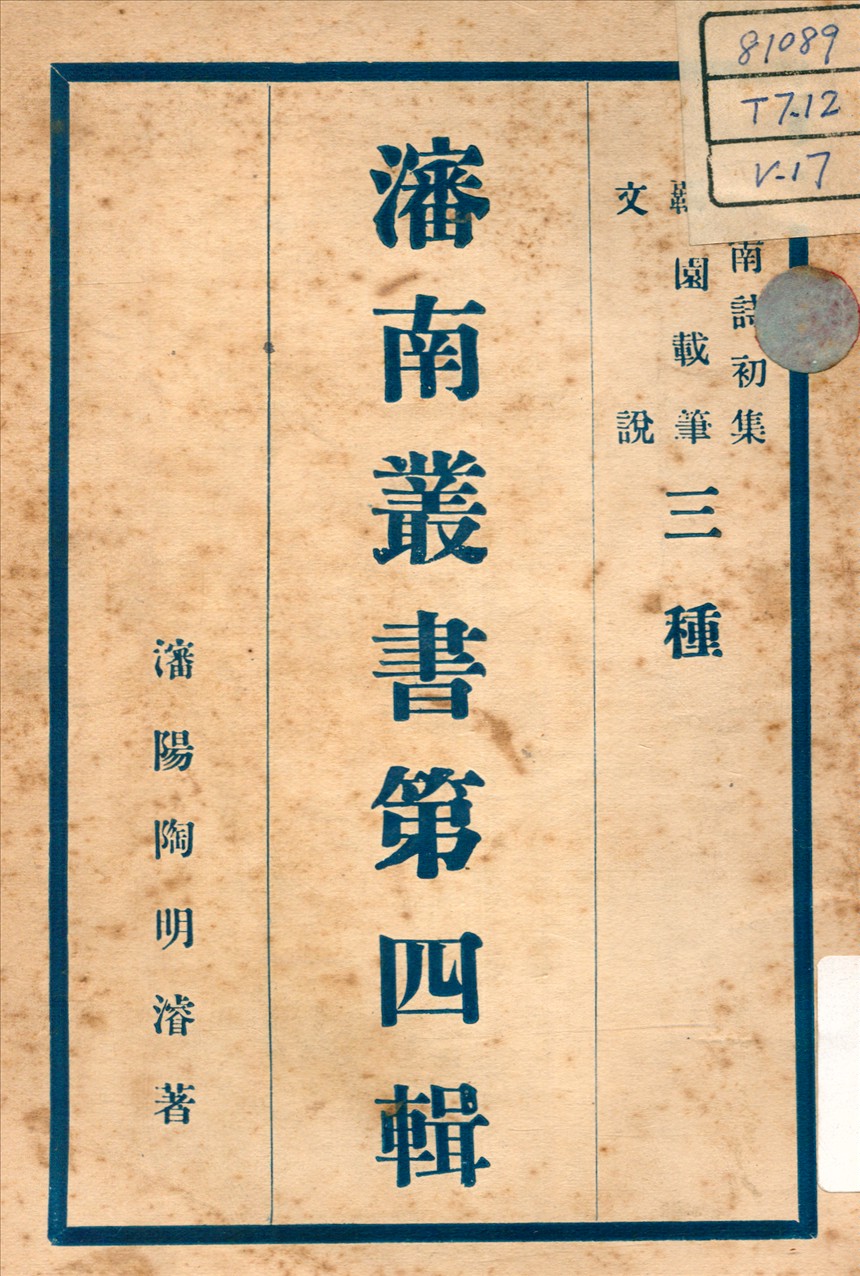 81089
T 7.12
V.17
南詩初集
園載筆
文說
三種
瀋南叢書第四輯
瀋陽陶明濬著